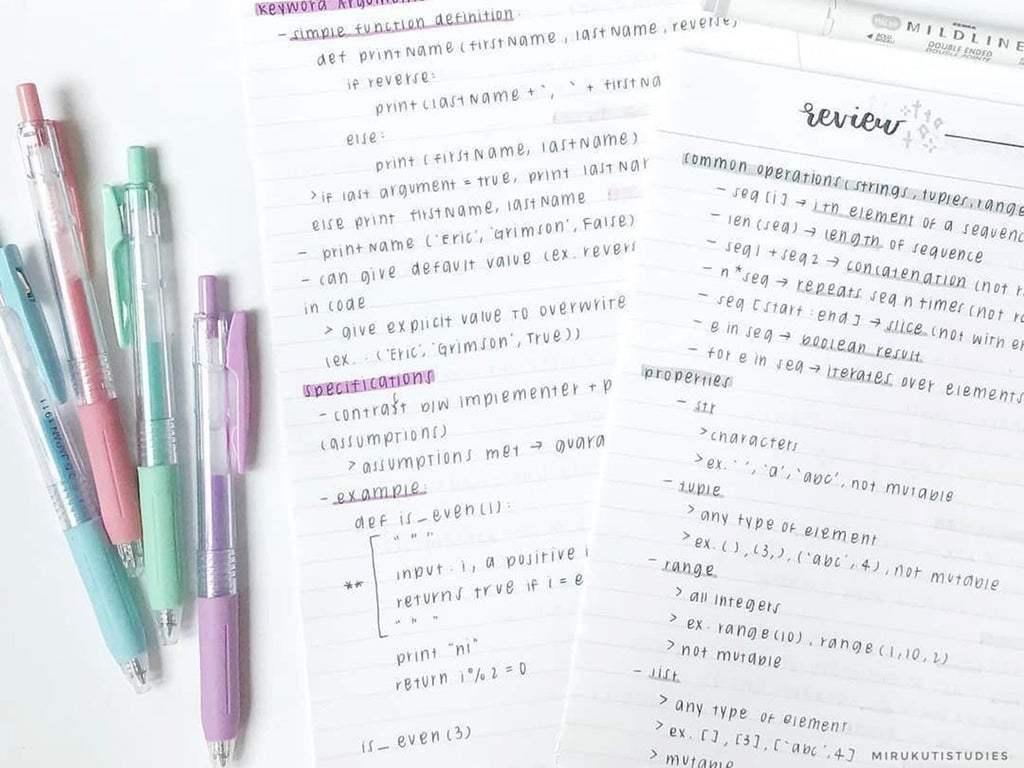 keyword Argum
- simple function definition:
def printName (firstName, lastName, reverse)
if reverse:
print (lastName + ', ' + firstNa
else:
print (firstName, lastName)
> if last argument = true, print lastNar
else print firstName, lastName
- printName ('Eric', 'Grimson', False)
- can give default value (ex. revers
in code
> give explicit value to overwrite
(ex. : ('Eric', 'Grimson', True))
specifications
- contrast b/w implementer + p
(assumptions)
> assumptions met → guara
- example:
def is_even(i):
" " "
** input: i, a positive i
returns true if i = e
" " "
print "hi"
return i % 2 = 0
is_even (3)
MILDLINE
DOUBLE ENDED
review
common operations (strings, tuples, range
- seq [i] → ith element of a sequenc
- len (seq) → length of sequence
- seq1 + seq2 → concatenation (not r
- n * seq → repeats seq n times (not ra
- seq [start : end] → slice (not with e
- e in seq → boolean result
- for e in seq → iterates over elements
properties
- str
> characters
> ex. ' ', 'a', 'abc', not mutable
- tuple
> any type of element
> ex. ( ), (3,), ('abc', 4), not mutable
- range
> all integers
> ex. range (10), range (1, 10, 2)
> not mutable
- list
> any type of element
> ex. [ ], [3], ['abc', 4]
> mutable
MIRUKUTISTUDIES